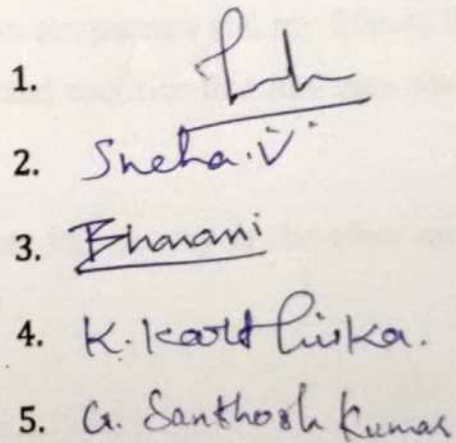 1.
2. Sneha.V
3. Bharani
4. K. Karthika.
5. G. Santhosh Kumar